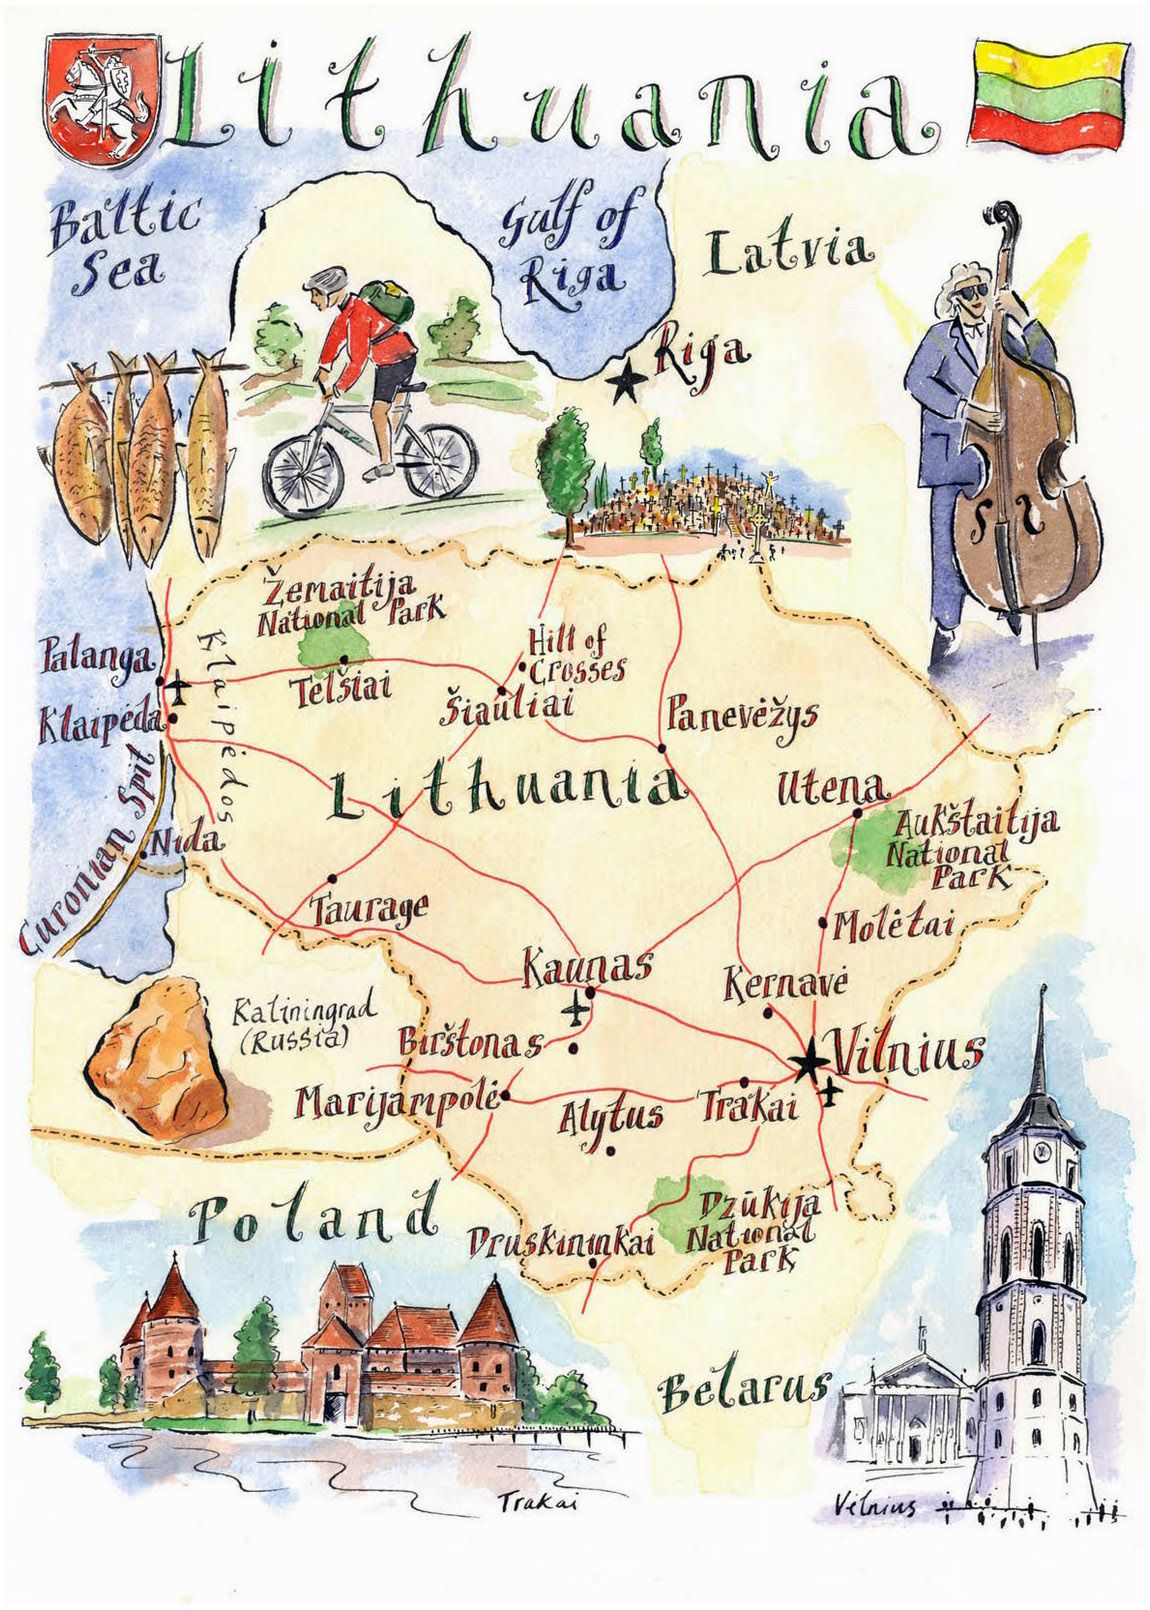 Lithuania
Baltic
Sea
Gulf of
Riga
Latvia
Riga
Žemaitija
National Park
Telšiai
Hill of
Crosses
Šiauliai
Palanga
Klaipėda
Klaipėdos
Panevėžys
Lithuania
Utena
Aukštaitija
National
Park
Curonian Spit
Nida
Taurage
Molėtai
Kaunas
Kernavė
Kaliningrad
(Russia)
Birštonas
Vilnius
Marijampolė
Alytus
Trakai
Poland
Druskininkai
Dzūkija
National
Park
Belarus
Trakai
Vilnius